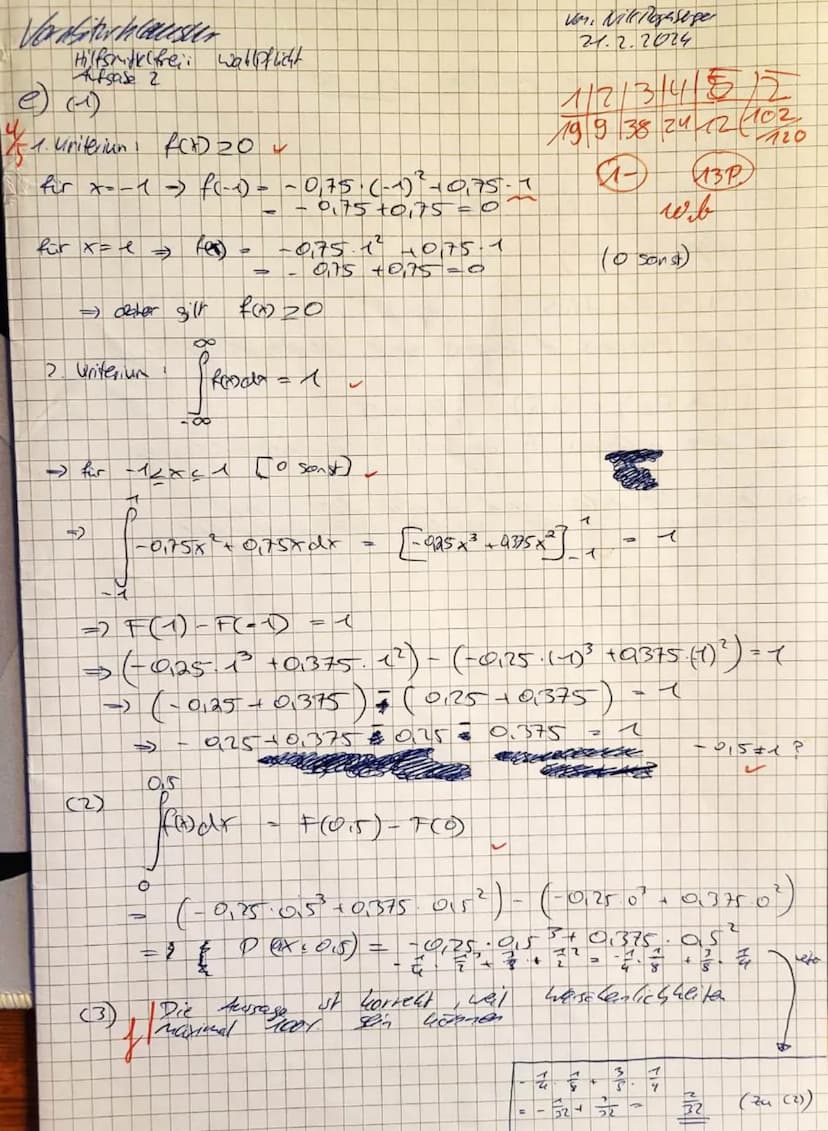 Vorabiturklausur
von: Nik
21.2.2024
Hilfsmittelfrei: Wahlpflicht
Aufgabe 2
1 | 2 | 3 | 4 | 5 | Σ
19 | 9 | 38 | 24 | 12 | 102/120
1- 13P.
e) (1)
4/5
1. Kriterium: f(x) ≥ 0 ✓
für x=-1 ⇒ f(-1) = -0,75·(-1)² + 0,75·1
= -0,75+0,75 = 0
für x=1 ⇒ f(x) = -0,75·1² + 0,75·1
= -0,75 + 0,75 = 0
(0 sonst)
⇒ daher gilt f(x) ≥ 0
2. Kriterium: ∫_{-∞}^{∞} f(x)dx = 1 ✓
⇒ für -1 ≤ x ≤ 1 [0 sonst) ✓
⇒ ∫_{-1}^{1} -0,75x² + 0,75x dx = [-0,25x³ + 0,375x²]_{-1}^{1} = 1
⇒ F(1) - F(-1) = 1
⇒ (-0,25·1³ + 0,375·1²) - (-0,25·(-1)³ + 0,375·(-1)²) = 1
⇒ (-0,25 + 0,375) - (0,25 + 0,375) = 1
⇒ -0,25 + 0,375 - 0,25 - 0,375 = 1
-0,5≠1? ✓
(2) ∫_{0}^{0,5} f(x)dx = F(0,5) - F(0) ✓
= (-0,25·0,5³ + 0,375·0,5²) - (-0,25·0³ + 0,375·0²)
= -0,25·0,5³ + 0,375·0,5²
-1/4 · 1/2³ + 3/8 · 1/2² = -1/4 · 1/8 + 3/8 · 1/4
(3) f | Die Aussage ist korrekt, weil Wahrscheinlichkeiten
maximal 100% sein können
-1/4 · 1/8 + 3/8 · 1/4
= -1/32 + 3/32 = 2/32 (zu (2))